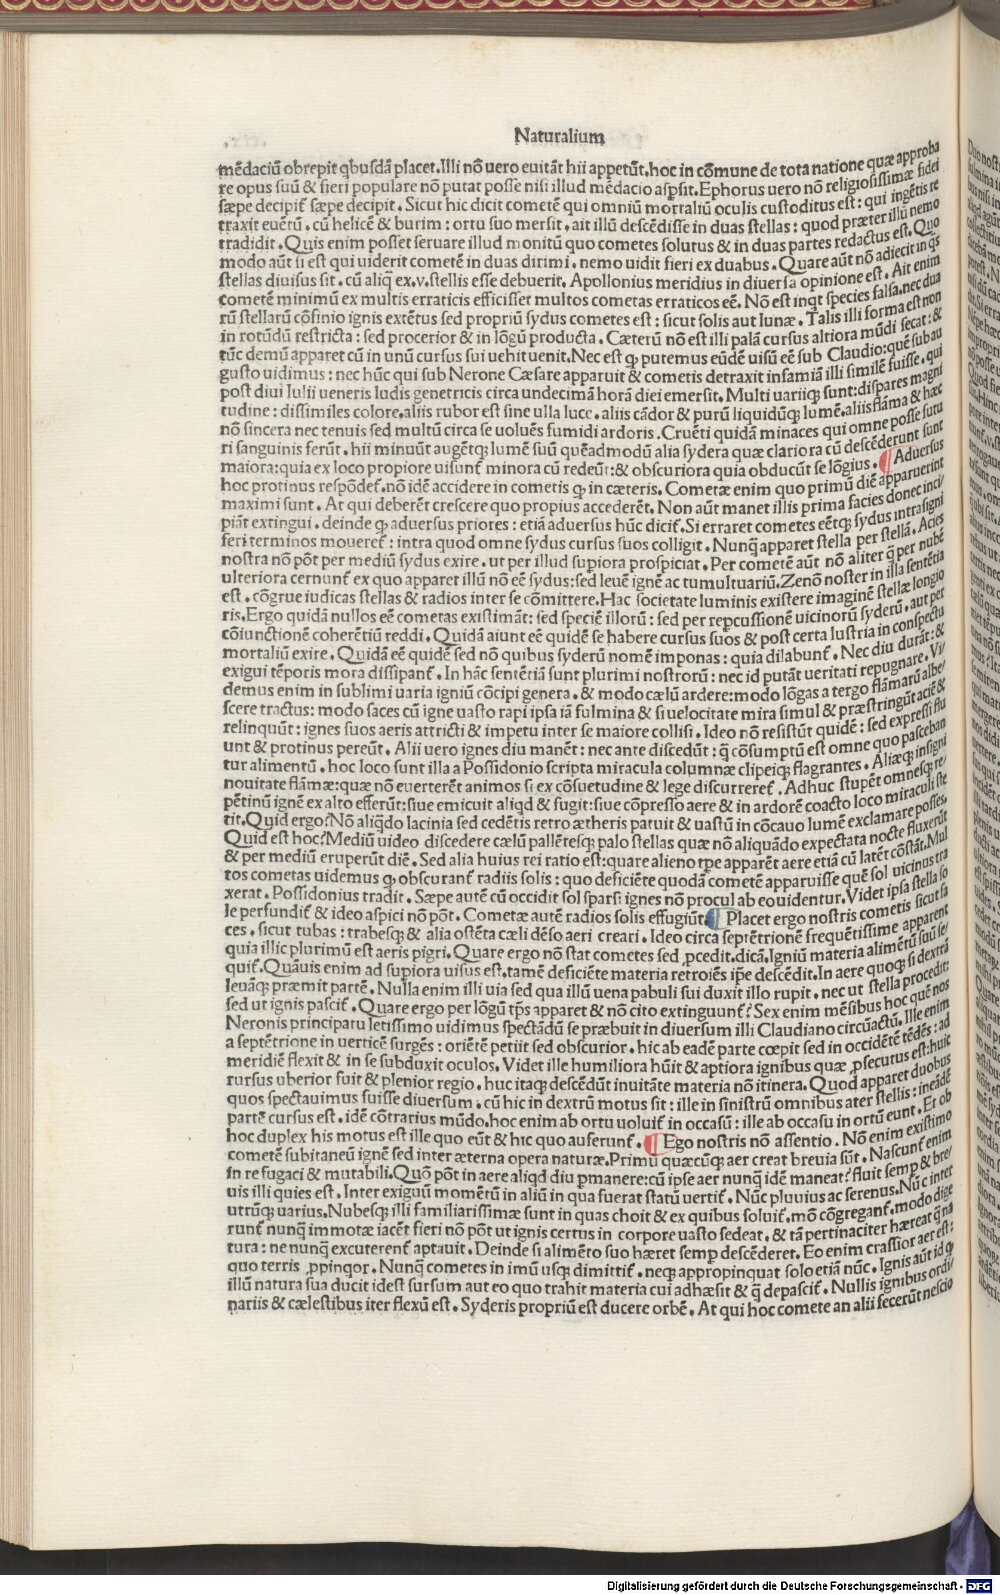 Naturalium
mēdaciū obrepit qbusdā placet.Illi nō uero euitāt hii appetūt.hoc in cōmune de tota natione quæ approba
re opus suū & fieri populare nō putat posse nisi illud mēdacio aspsit.Ephorus uero nō religiosissimæ fidei
sæpe decipit̄ sæpe decipit. Sicut hic dicit cometē qui omniū mortaliū oculis custoditus est: qui ingētis re
traxit euētū. cū helicē & burim: ortu suo mersit. ait illū descēdisse in duas stellas: quod præter illū nemo
tradidit. Quis enim posset seruare illud monitū quo cometes solutus & in duas partes redactus est. Quo
modo aūt ii est qui uiderit cometē in duas dirimi. nemo uidit fieri ex duabus. Quare aūt nō adiecit in q̄s
stellas diuisus sit. cū aliq̄ ex.v.stellis esse debuerit. Apollonius meridius in diuersa opinione est. Ait enim
cometē minimū ex multis erraticis efficisset multos cometas erraticos eē. Nō est inqt species falsa.nec dua
rū stellarū cōfinio ignis extētus sed propriū sydus cometes est: sicut solis aut lunæ. Talis illi forma est non
in rotūdū restricta: sed procerior & in lōgū producta. Cæterū nō est illi palā cursus altiora mūdi secat: &
tūc demū apparet cū in unū cursus sui uehit uenit.Nec est q̨ putemus eūdē uisū eē sub Claudio:quē sub au
gusto uidimus: nec hūc qui sub Nerone Cæsare apparuit & cometis detraxit infamiā illi similē fuisse. qui
post diui Iulii ueneris ludis genetricis circa undecimā horā diei emersit. Multi uariiq̨ sunt:dispares magni
tudine: dissimiles colore.aliis rubor est sine ulla luce. aliis cādor & purū liquidūq̨ lumē.aliis flāma & hæc
nō sincera nec tenuis sed multū circa se uoluēs fumidi ardoris. Cruēti quidā minaces qui omne posse sutu
ri sanguinis ferūt. hii minuūt augētq̨ lumē suū quēadmodū alia sydera quæ clariora cū descēderunt sunt
maiora:quia ex loco propiore uisunt̄ minora cū redeūt:& obscuriora quia obducūt se lōgius. ¶ Aduersus
hoc protinus respōdet̄.nō idē accidere in cometis q̨ in cæteris. Cometæ enim quo primū diē apparuerint
maximi sunt. At qui deberēt crescere quo propius accederēt. Non aūt manet illis prima facies donec inci/
piāt extingui. deinde q̨ aduersus priores: etiā aduersus hūc dicit̄.Si erraret cometes eētq̨ sydus intra signi
feri terminos moueret̄: intra quod omne sydus cursus suos colligit. Nunq̄ apparet stella per stellā. Acies
nostra nō pōt per mediū sydus exire. ut per illud supiora prospiciat. Per cometē aūt nō aliter q̄ per nubē
ulteriora cernunt̄ ex quo apparet illū nō eē sydus:sed leuē ignē ac tumultuariū.Zenō noster in illa sentētia
est. cōgrue iudicas stellas & radios inter se cōmittere.Hac societate luminis existere imaginē stellæ longio
ris.Ergo quidā nullos eē cometas existimāt: sed speciē illorū: sed per repcussionē uicinorū syderū. aut per
cōiunctionē coherētiū reddi. Quidā aiunt eē quidē se habere cursus suos & post certa lustria in conspectu
mortaliū exire. Quidā eē quidē sed nō quibus syderū nomē imponas: quia dilabunt̄. Nec diu durāt: &
exigui tēporis mora dissipant̄. In hāc sentētiā sunt plurimi nostrorū: nec id putāt ueritati repugnare. Vi/
demus enim in sublimi uaria igniū cōcipi genera. & modo cælū ardere:modo lōgas a tergo flāmarū albe/
scere tractus: modo faces cū igne uasto rapi ipsa iā fulmina & si uelocitate mira simul & præstringūt aciē &
relinquūt: ignes suos aeris attricti & impetu inter se maiore collisi. Ideo nō resistūt quidē: sed expressi flu
unt & protinus pereūt. Alii uero ignes diu manēt: nec ante discedūt: q̄ cōsumptū est omne quo pasceban
tur alimentū. hoc loco sunt illa a Possidonio scripta miracula columnæ clipeiq̨ flagrantes. Aliæq̨ insigni
nouitate flāmæ:quæ nō euerterēt animos si ex cōsuetudine & lege discurreret̄. Adhuc stupēt omnesq̨ re/
pētinū ignē ex alto efferūt:siue emicuit aliqd & fugit:siue cōpresso aere & in ardorē coacto loco miraculi ste
tit.Quid ergo?Nō aliqdo lacinia sed cedētis retro ætheris patuit & uastū in cōcauo lumē exclamare posses.
Quid est hoc?Mediū uideo discedere cælū pallētesq̨ palo stellas quæ nō aliquādo expectata nocte fluxerūt
& per mediū eruperūt diē. Sed alia huius rei ratio est:quare alieno tpe apparēt aere etiā cū latēt cōstāt.Mul
tos cometas uidemus q̨ obscurant̄ radiis solis: quo deficiēte quodā cometē apparuisse quē sol uicinus tra
xerat. Possidonius tradit. Sæpe autē cū occidit sol sparsi ignes nō procul ab eo uidentur.Videt ipsa stella so
le perfundit̄ & ideo aspici nō pōt. Cometæ autē radios solis effugiūt. ¶ Placet ergo nostris cometis sicut fa
ces. sicut tubas: trabesq̨ & alia ostēta cæli dēso aeri creari. Ideo circa septētrionē frequētissime apparent
quia illic plurimū est aeris pigri. Quare ergo nō stat cometes sed ꝓcedit.dicā.Igniū materia alimētū suū se/
quit̄.Quāuis enim ad supiora uisus est.tamē deficiēte materia retroiēs ip̄e descēdit.In aere quoq̨ si dextrā
leuāq̨ præmit partē. Nulla enim illi uia sed qua illū uena pabuli sui duxit illo rupit. nec ut stella procedit:
sed ut ignis pascit̄. Quare ergo per lōgū tp̄s apparet & nō cito extinguunt̄? Sex enim mēsibus hoc quē nos
Neronis principatu letissimo uidimus spectādū se præbuit in diuersum illi Claudiano circūactū. Ille enim
a septētrione in uerticē surgēs: oriētē petiit sed obscurior. hic ab eadē parte cœpit sed in occidētē tēdēs: ad
meridiē flexit & in se subduxit oculos. Videt ille humiliora hūit & aptiora ignibus quæ ꝓsecutus est:huic
rursus uberior fuit & plenior regio. huc itaq̨ descēdūt inuitāte materia nō itinera. Quod apparet duobus
quos spectauimus fuisse diuersum. cū hic in dextrū motus sit: ille in sinistrū omnibus ater stellis: ineādē
partē cursus est. idē cōtrarius mūdo.hoc enim ab ortu uoluit̄ in occasū: ille ab occasu in ortū eunt. Et ob
hoc duplex his motus est ille quo eūt & hic quo auferunt̄. ¶ Ego nostris nō assentio. Nō enim existimo
cometē subitaneū ignē sed inter æterna opera naturæ.Primū quæcūq̨ aer creat breuia sūt. Nascunt̄ enim
in re fugaci & mutabili.Quō pōt in aere aliqd diu pmanere:cū ipse aer nunq̄ idē maneat?fluit semp & bre/
uis illi quies est. Inter exiguū momētū in aliū in qua fuerat statū uertit̄. Nūc pluuius ac serenus.Nūc inter
utrūq̨ uarius.Nubesq̨ illi familiarissimæ sunt in quas choit & ex quibus soluit̄.mō cōgregant̄.modo dige
runt̄ nunq̄ immotæ iacēt fieri nō pōt ut ignis certus in corpore uasto sedeat. & tā pertinaciter hæreat q̄ na
tura: ne nunq̄ excuterent̄ aptauit. Deinde si alimēto suo hæret semp descēderet. Eo enim crassior aer est:
quo terris ꝓpinqor. Nunq̄ cometes in imū usq̨ dimittit̄. neq̨ appropinquat solo etiā nūc. Ignis aūt id q̨
illū natura sua ducit idest sursum aut eo quo trahit materia cui adhæsit & q̄ depascit̄. Nullis ignibus ordi/
nariis & cælestibus iter flexū est. Syderis propriū est ducere orbē. At qui hoc comete an alii fecerūt nescio
Digitalisierung gefördert durch die Deutsche Forschungsgemeinschaft - DFG